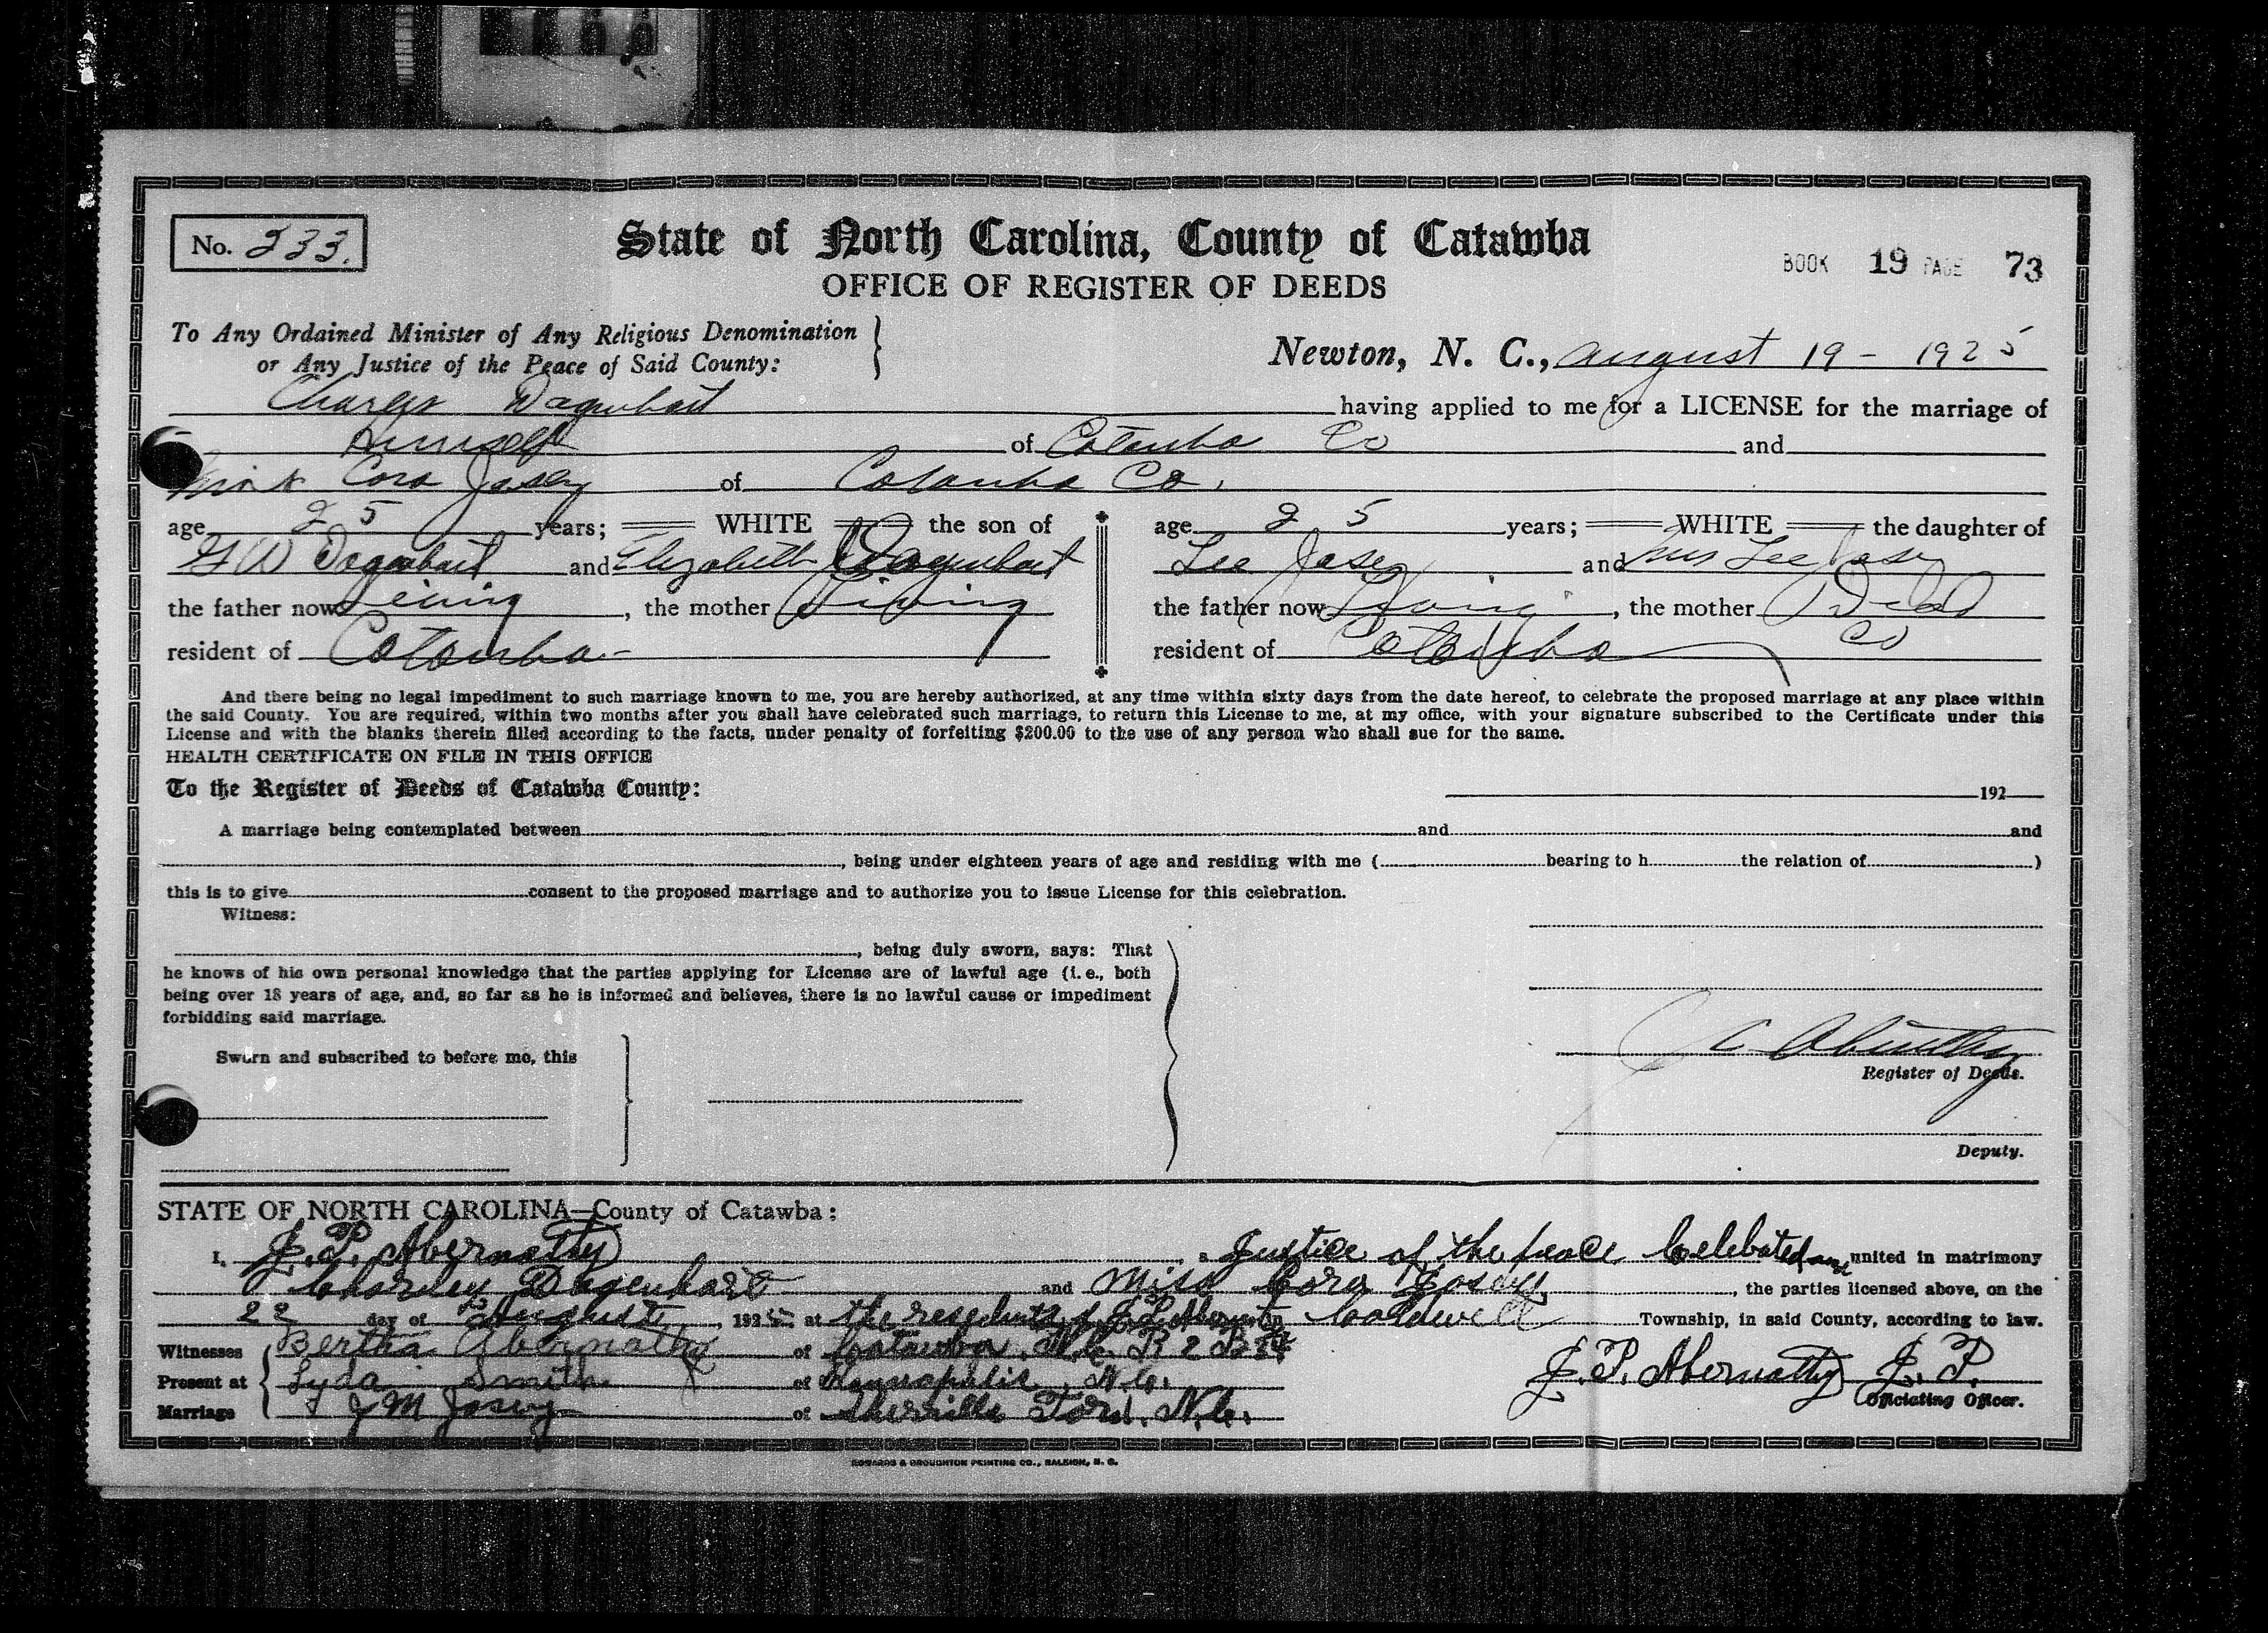 No. 233.
State of North Carolina, County of Catawba
OFFICE OF REGISTER OF DEEDS
BOOK 19 PAGE 73
To Any Ordained Minister of Any Religious Denomination
or Any Justice of the Peace of Said County:
Newton, N. C., August 19 - 1925
Charles Dagenhart having applied to me for a LICENSE for the marriage of
Himself of Catawba Co and
Cora Josey of Catawba Co.
age 25 years; WHITE the son of
G W Dagenhart and Elizabeth Dagenhart
the father now Living, the mother Living
resident of Catawba
age 25 years; WHITE the daughter of
Lee Josey and Mrs Lee Josey
the father now Living, the mother Dead
resident of Catawba Co
And there being no legal impediment to such marriage known to me, you are hereby authorized, at any time within sixty days from the date hereof, to celebrate the proposed marriage at any place within
the said County. You are required, within two months after you shall have celebrated such marriage, to return this License to me, at my office, with your signature subscribed to the Certificate under this
License and with the blanks therein filled according to the facts, under penalty of forfeiting $200.00 to the use of any person who shall sue for the same.
HEALTH CERTIFICATE ON FILE IN THIS OFFICE
To the Register of Deeds of Catawba County:
192
A marriage being contemplated between and and
, being under eighteen years of age and residing with me ( bearing to h the relation of )
this is to give consent to the proposed marriage and to authorize you to issue License for this celebration.
Witness:
, being duly sworn, says: That
he knows of his own personal knowledge that the parties applying for License are of lawful age (i. e., both
being over 18 years of age, and, so far as he is informed and believes, there is no lawful cause or impediment
forbidding said marriage.
Sworn and subscribed to before me, this
J C Abernethy
Register of Deeds.
Deputy.
STATE OF NORTH CAROLINA—County of Catawba:
I, J. P. Abernathy, a Justice of the peace Celebated and united in matrimony
Charley Dagenhart and Miss Cora Josey, the parties licensed above, on the
22 day of August, 1925 at the J. P. Caldwell Township, in said County, according to law.
Witnesses Bertha Abernathy of Catawba, N.C. R 2 B
Present at Lyda Smith of Kannapolis, N.C.
Marriage J M Josey of Sherrills Ford, N.C.
J. P. Abernathy J. P.
Officiating Officer.
EDWARDS & BROUGHTON PRINTING CO., RALEIGH, N. C.